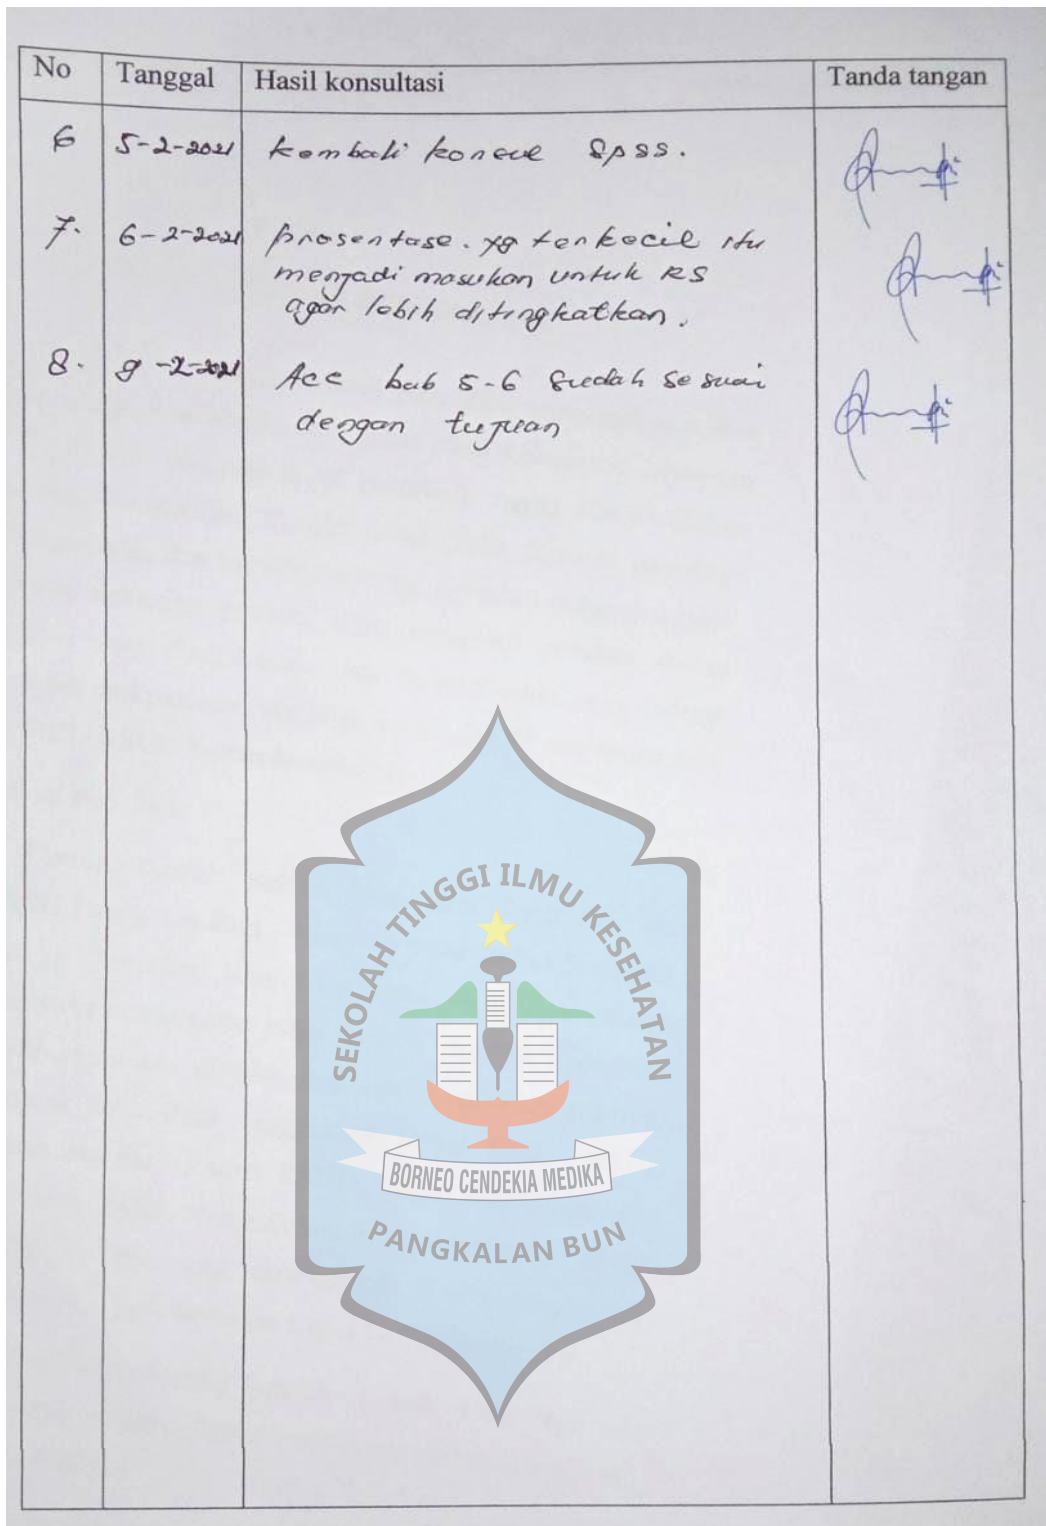 No Tanggal Hasil konsultasi Tanda tangan
6 5-2-2021 kembali konsul SPSS.
7. 6-2-2021 prosentase. yg terkecil itu
menjadi masukan untuk RS
agar lebih ditingkatkan.
8. 9-2-2021 Acc bab 5-6 sudah sesuai
dengan tujuan
SEKOLAH TINGGI ILMU KESEHATAN
BORNEO CENDEKIA MEDIKA
PANGKALAN BUN